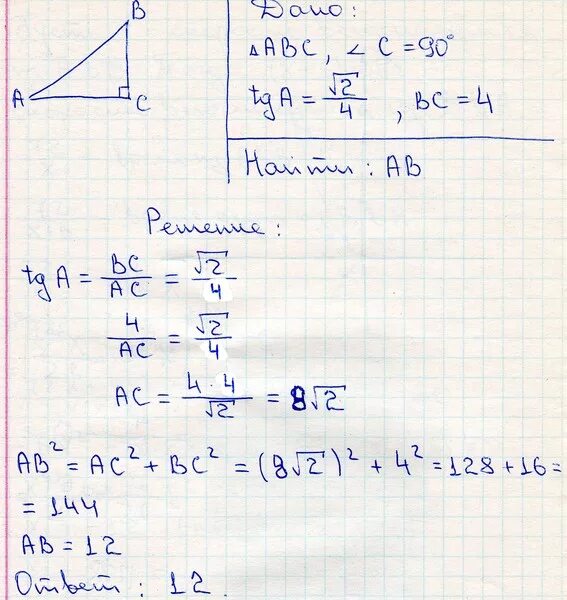 B
A
C
Дано:
△ABC, ∠C=90°
tg A = √2/4, BC = 4
Найти: AB
Решение:
tg A = BC/AC = √2/4
4/AC = √2/4
AC = 4·4/√2 = 8√2
AB² = AC² + BC² = (8√2)² + 4² = 128 + 16 =
= 144
AB = 12
Ответ: 12.